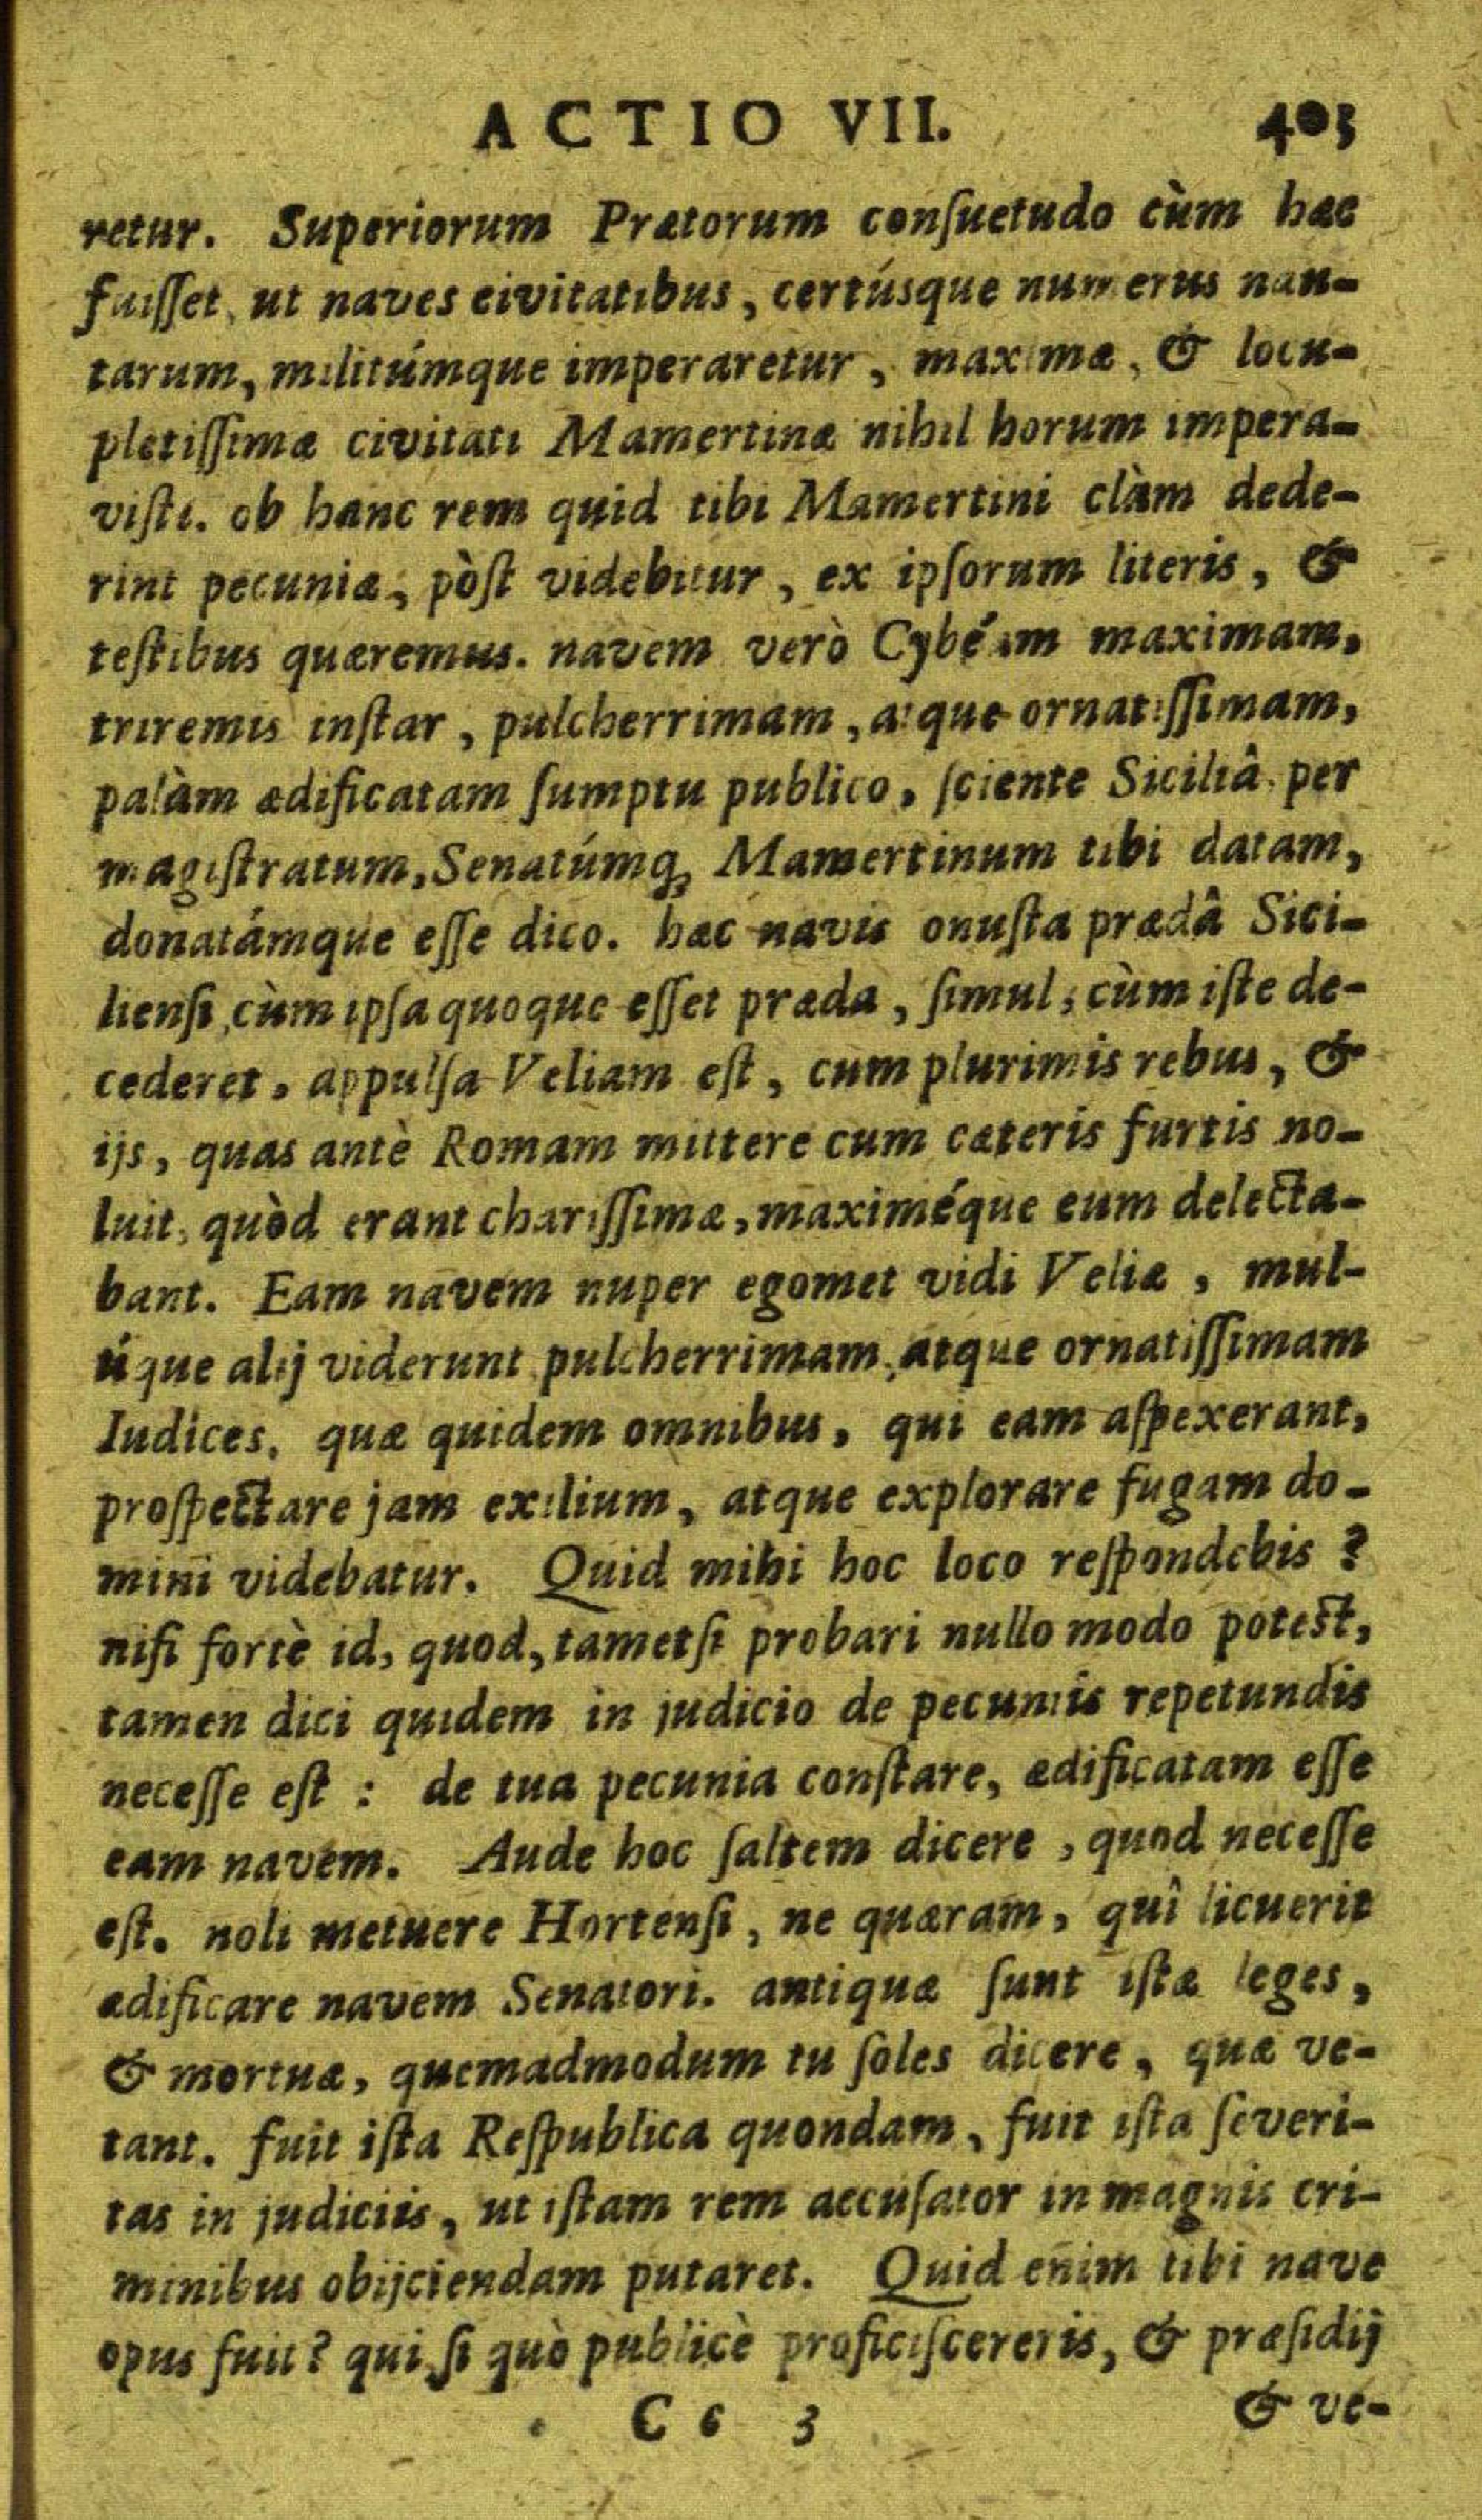 ACTIO VII. 405
retur. Superiorum Prætorum conſuetudo cùm hæc
fuiſſet, ut naves civitatibus, certúsque numerus nau-
tarum, militúmque imperaretur, maximæ, & locu-
pletiſſimæ civitati Mamertinæ nihil horum impera-
viſti. ob hanc rem quid tibi Mamertini clàm dede-
rint pecuniæ, pòſt videbitur, ex ipſorum literis, &
teſtibus quæremus. navem verò Cybéam maximam,
triremis inſtar, pulcherrimam, atque ornatiſſimam,
palàm ædificatam ſumptu publico, ſciente Siciliâ, per
magiſtratum, Senatúmq; Mamertinum tibi datam,
donatámque eſſe dico. hæc navis onuſta prædâ Sici-
lienſi, cùm ipſa quoque eſſet præda, ſimul, cùm iſte de-
cederet, appulſa Veliam eſt, cum plurimis rebus, &
ijs, quas antè Romam mittere cum cæteris furtis no-
luit, quòd erant chariſſimæ, maximéque eum delecta-
bant. Eam navem nuper egomet vidi Veliæ, mul-
tíque alij viderunt pulcherrimam, atque ornatiſſimam
Iudices. quæ quidem omnibus, qui eam aſpexerant,
proſpectare jam exilium, atque explorare fugam do-
mini videbatur. Quid mihi hoc loco reſpondebis?
niſi fortè id, quod, tametſi probari nullo modo poteſt,
tamen dici quidem in judicio de pecuniis repetundis
neceſſe eſt: de tua pecunia conſtare, ædificatam eſſe
eam navem. Aude hoc ſaltem dicere, quod neceſſe
eſt. noli metuere Hortenſi, ne quæram, quî licuerit
ædificare navem Senatori. antiquæ ſunt iſtæ leges,
& mortuæ, quemadmodum tu ſoles dicere, quæ ve-
tant. fuit iſta Reſpublica quondam, fuit iſta ſeveri-
tas in judiciis, ut iſtam rem accuſator in magnis cri-
minibus obijciendam putaret. Quid enim tibi nave
opus fuit? qui, ſi quò publicè proficiſcereris, & præſidij
C c 3 & ve-